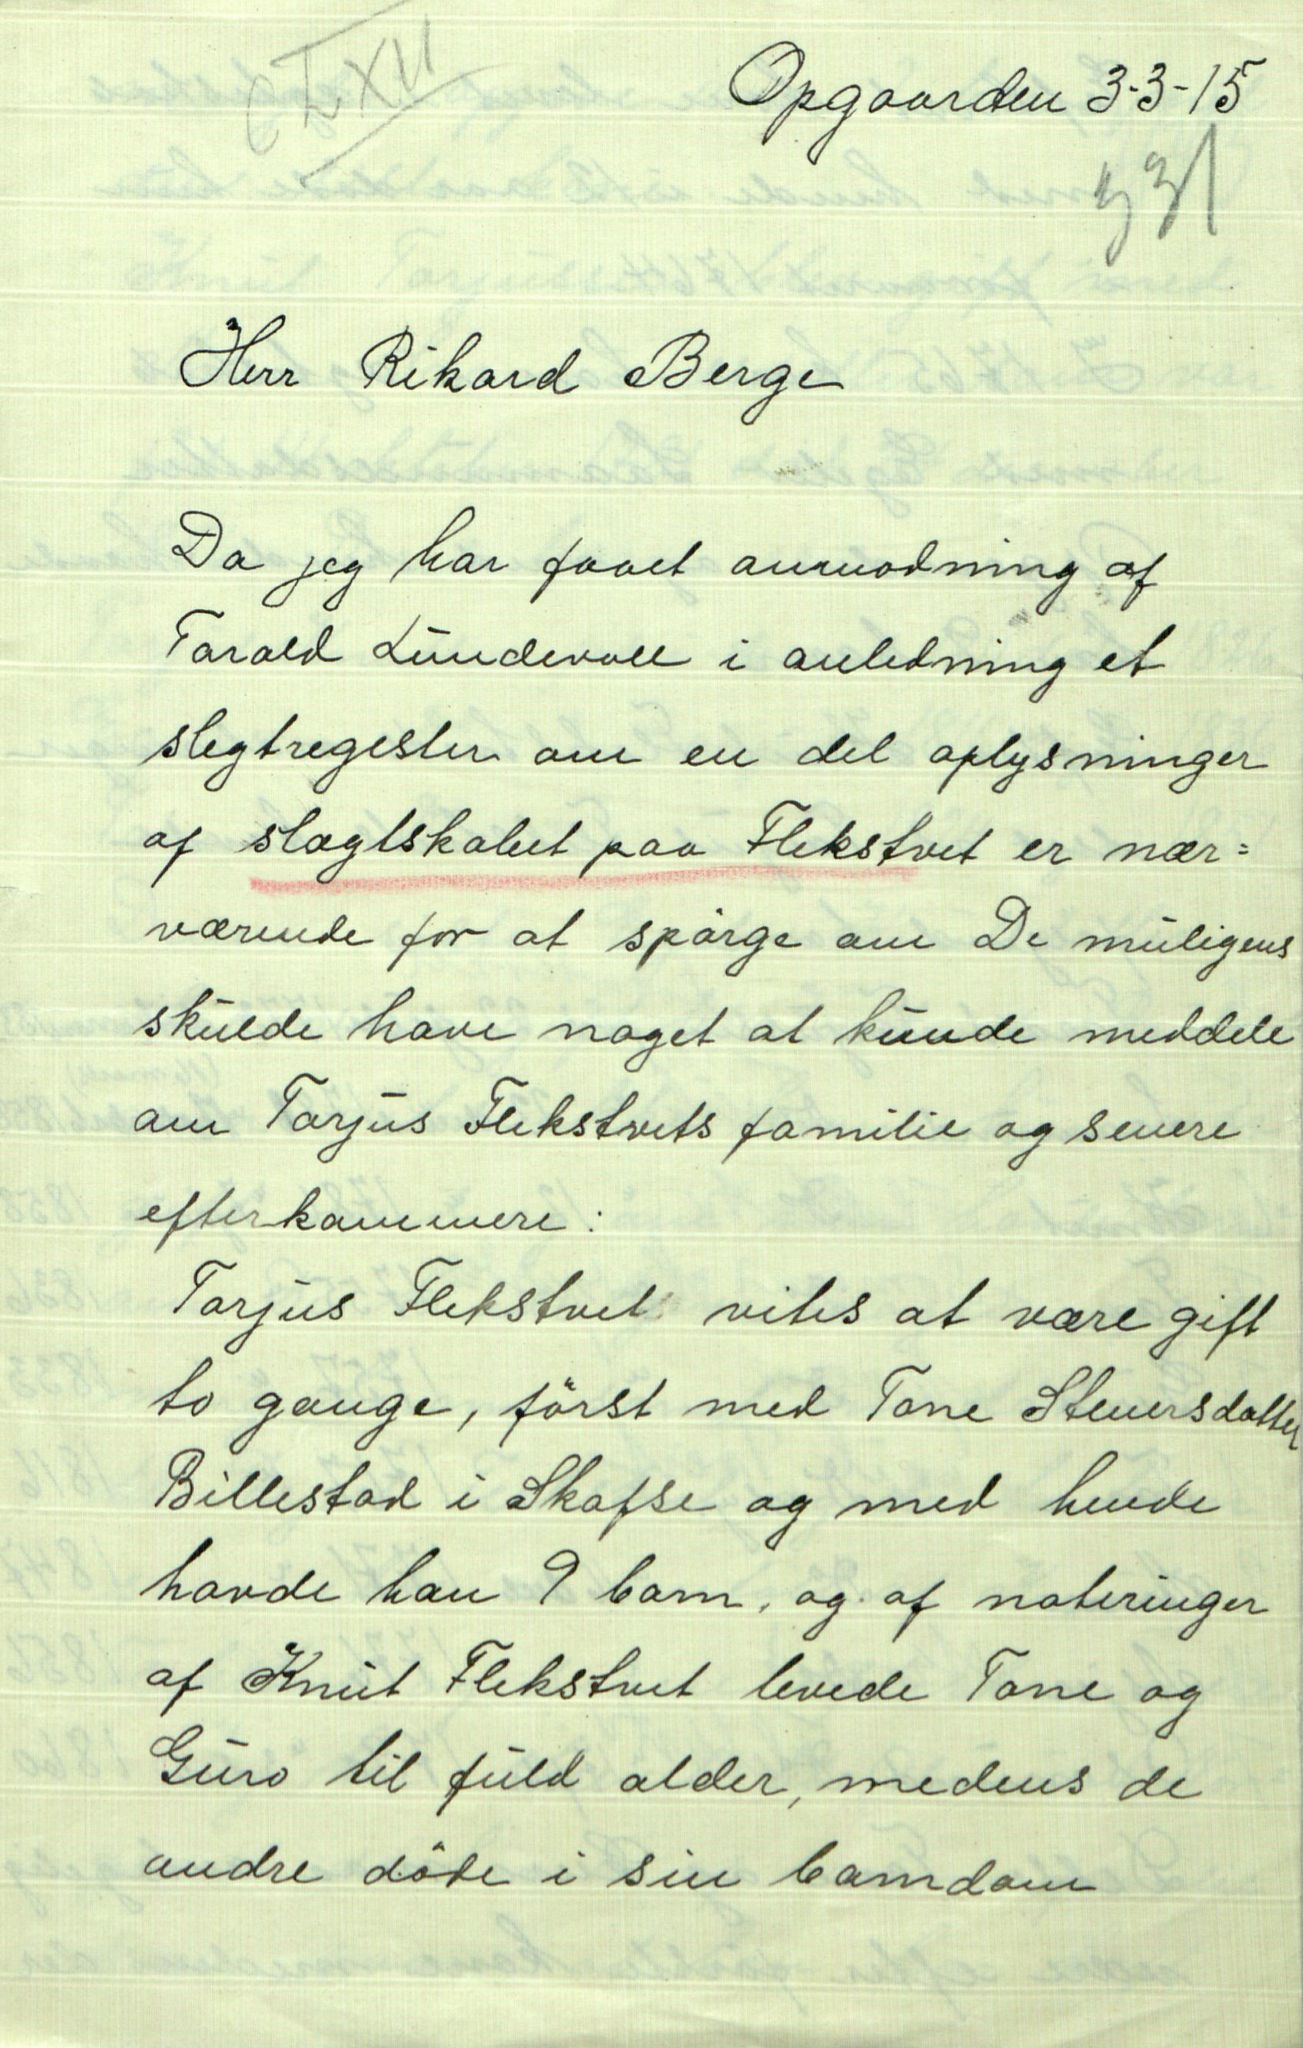 LXII
Opgaarden 3-3-15
931
Herr Rikard Berge
Da jeg har faaet anmodning af
Tarald Lundevall i anledning et
slegtregester om en del oplysninger
af slagtskabet paa Flekstvet er nær=
værende for at spørge om De muligens
skulde have noget at kunde meddele
om Tarjus Flekstvets familie og senere
efterkommere:
Tarjus Flekstvet vites at være gift
to gange, først med Tone Steuersdatter
Billestad i Skafse og med hende
havde han 9 barn, og af noteringer
af Knut Flekstvet levede Tone og
Guro til fuld alder, medens de
andre døde i sin barndom